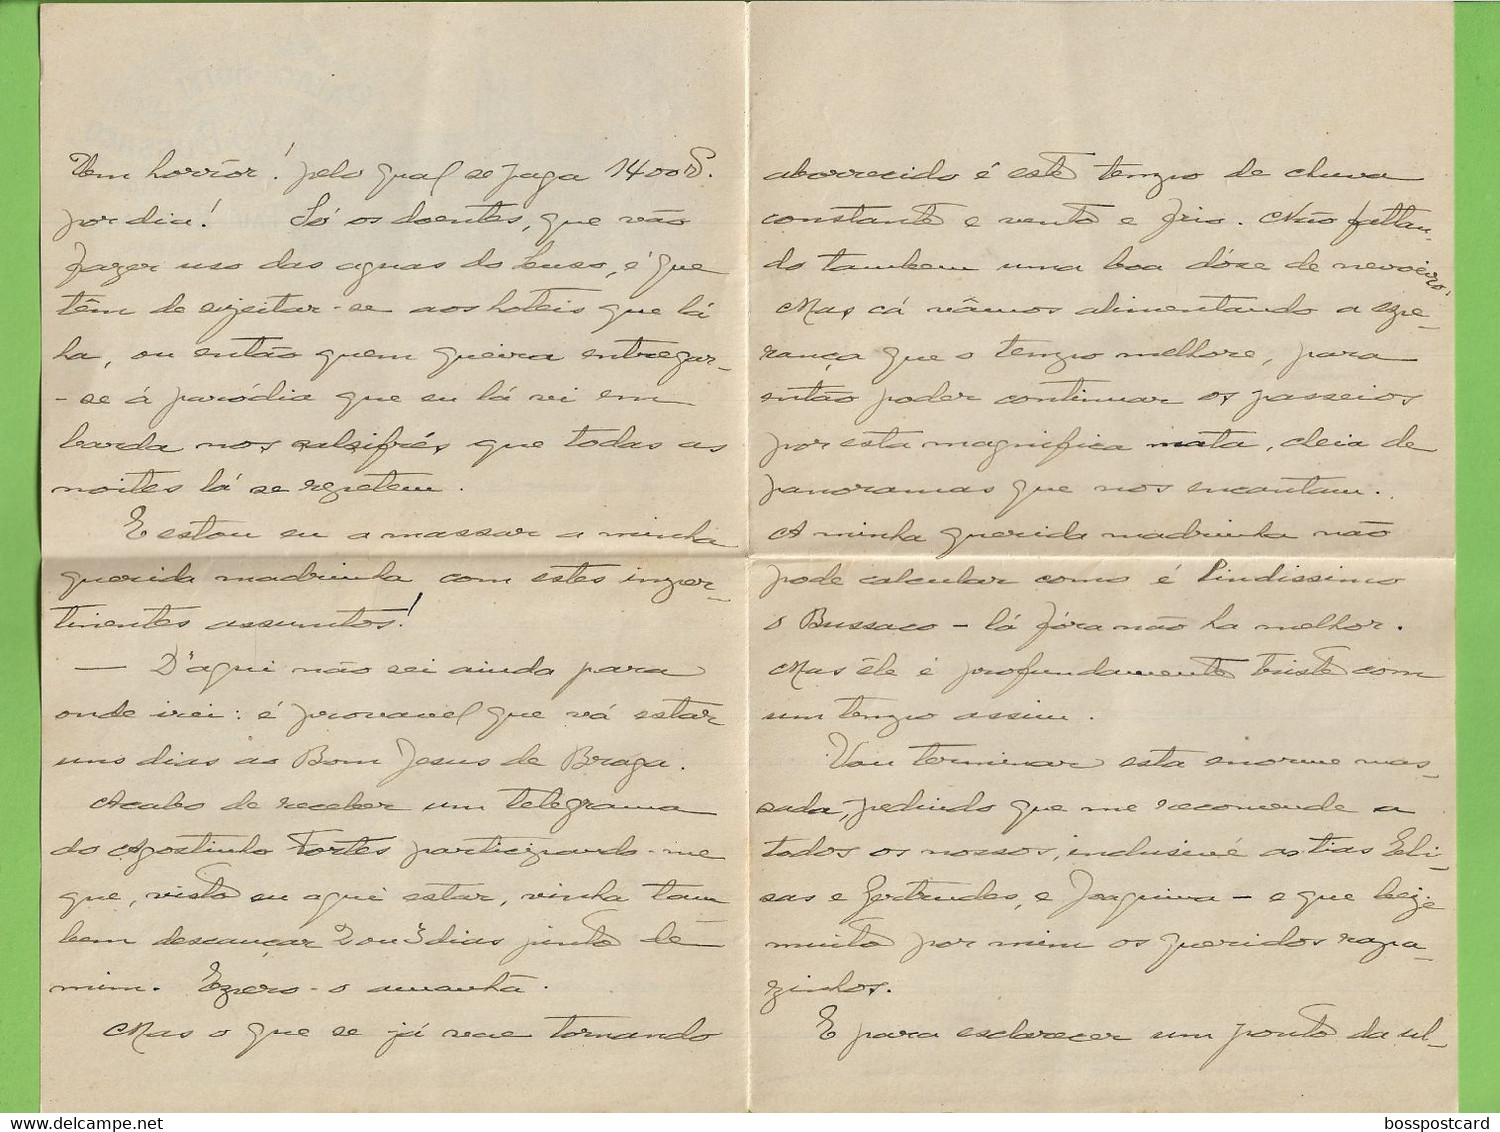 Um horrôr! pelo qual se paga 1400$.
por dia! Só os doentes, que vão
fazer uso das aguas do Luso, é que
têm de sugeitar-se aos hoteis que lá
ha, ou então quem queira entregar-
-se á paródia que eu lá vi em
barda nos salsifrés que todas as
noites lá se repetem.
E estou eu a massar a minha
querida madrinha com estes imper-
tinentes assuntos!
— D'aqui não sei ainda para
onde irei: é provavel que vá estar
uns dias ao Bom Jesus de Braga.
Acabo de receber um telegrama
do Agostinho Fortes participando-me
que, visto eu aqui estar, vinha tam-
bem descançar 2 ou 3 dias junto de
mim. Espéro-o amanhã.
Mas o que se já vae tornando
aborrecido é este tempo de chuva
constante e vento e frio. Não faltan-
do tambem uma boa dóse de nevoeiro!
Mas, cá vâmos alimentando a espe-
rança que o tempo melhore, para
então poder continuar os passeios
por esta magnifica mata, cheia de
panoramas que nos encantam.
A minha querida madrinha não
pode calcular como é lindissimo
o Bussaco – lá fóra não ha melhor.
Mas êle é profundamente triste com
um tempo assim.
Vou terminar esta enorme mas-
sada, pedindo que me recomende a
todos os nossos, inclusivé as tias Eli-
sas e Gertrudes, e Joaquina – e que beije
muito por mim os queridos rapa-
zinhos.
E para esclarecer um ponto da ul-
bosspostcard
www.delcampe.net